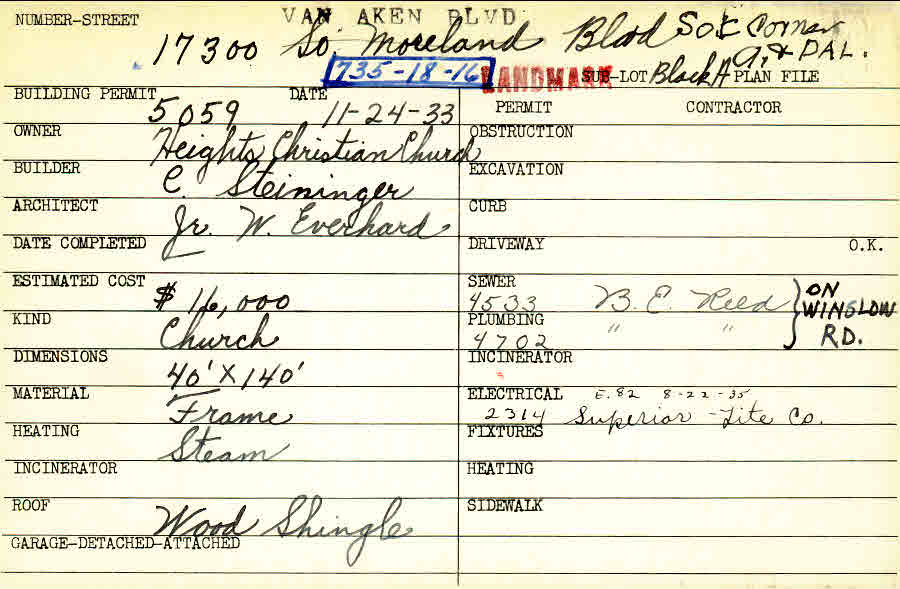 VAN AKEN BLVD
NUMBER-STREET 17300 So. Moreland Blvd So E Corner
735-18-16 LANDMARK SUB-LOT Block A PLAN FILE A, & DAL.
BUILDING PERMIT 5059 DATE 11-24-33 PERMIT CONTRACTOR
OWNER Heights Christian Church OBSTRUCTION
BUILDER C. Steininger EXCAVATION
ARCHITECT Jr. W. Everhard CURB
DATE COMPLETED DRIVEWAY O.K.
ESTIMATED COST $16,000 SEWER 4533 B. E. Reed } ON WINSLOW RD.
KIND Church PLUMBING 4702 " "
DIMENSIONS 40' X 140' INCINERATOR
MATERIAL Frame ELECTRICAL 2314 E.82 8-22-35 Superior-Lite Co.
HEATING Steam FIXTURES
INCINERATOR HEATING
ROOF Wood Shingle SIDEWALK
GARAGE-DETACHED-ATTACHED